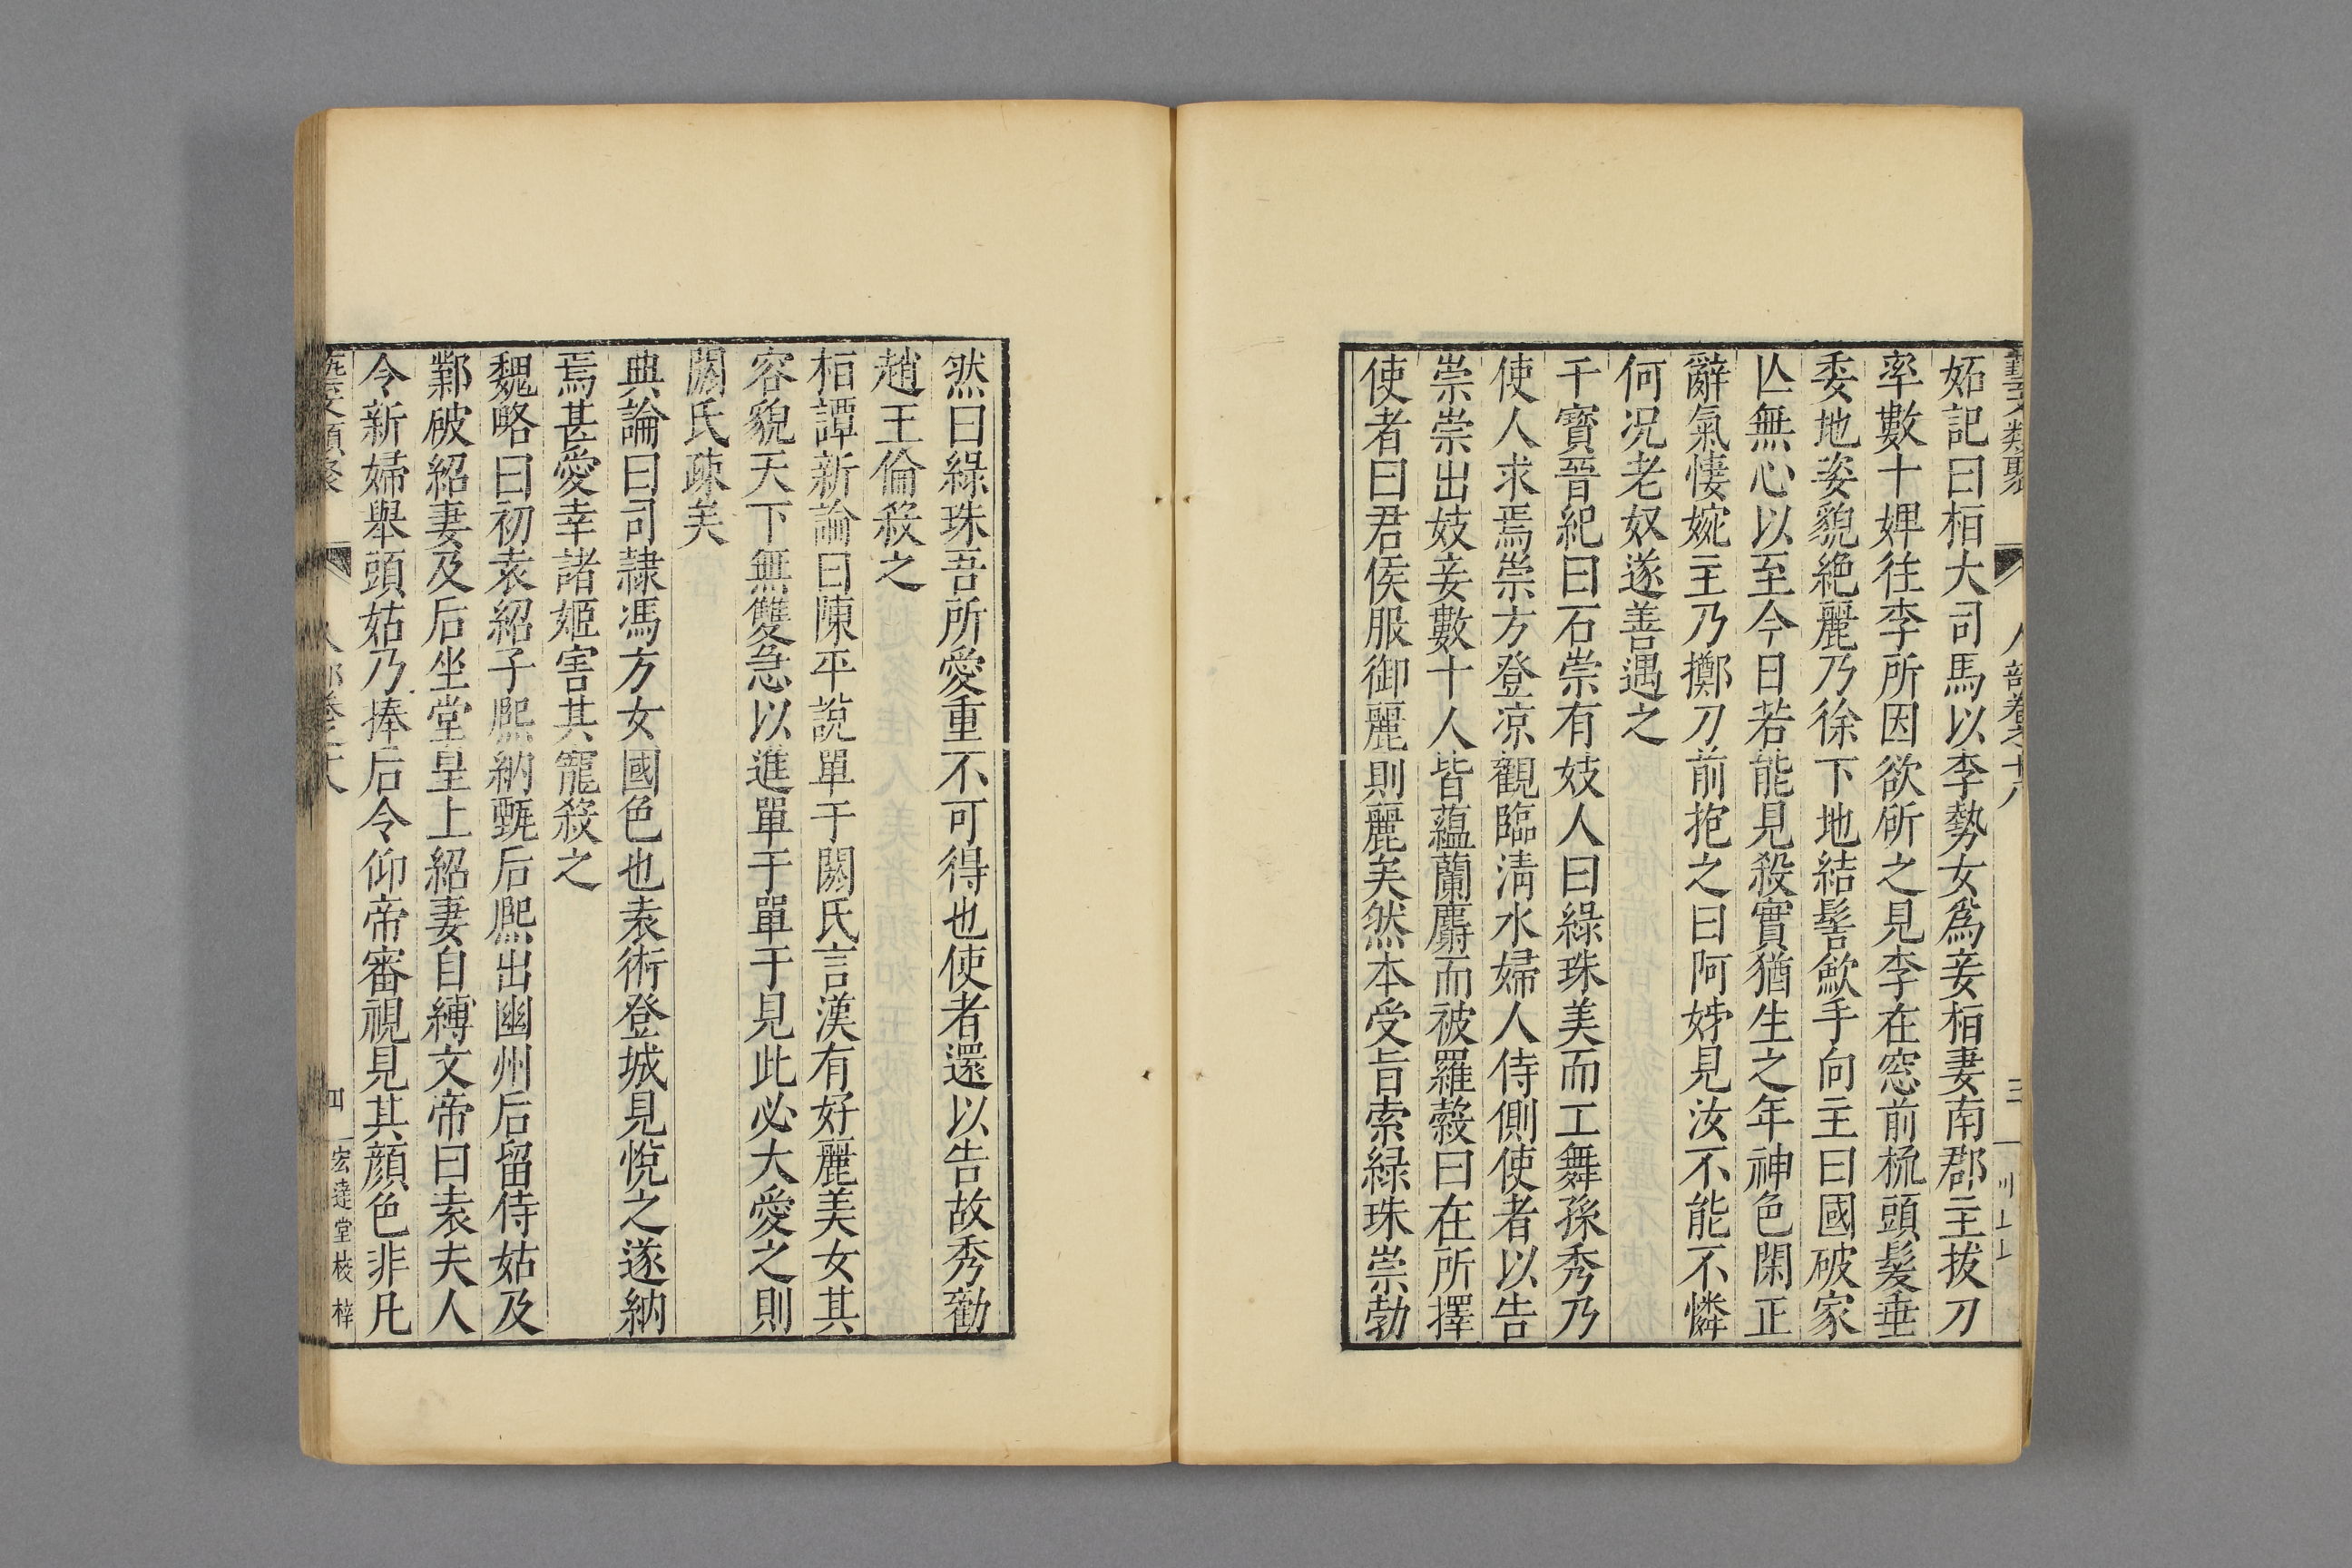 藝文類聚 人部卷之十八 三
妬記曰栢大司馬以李勢女爲妾栢妻南郡主拔刀
率數十婢往李所因欲斫之見李在窓前梳頭髮垂
委地姿貌絶麗乃徐下地結髻歛手向主曰國破家
亾無心以至今日若能見殺實猶生之年神色閑正
辭氣悽婉主乃擲刀前抱之曰阿姊見汝不能不憐
何况老奴遂善遇之
干寶晉紀曰石崇有妓人曰綠珠美而工舞孫秀乃
使人求焉崇方登凉觀臨淸水婦人侍側使者以告
崇崇出妓妾數十人皆蘊蘭麝而被羅縠曰在所擇
使者曰君侯服御麗則麗矣然本受旨索綠珠崇勃
然曰綠珠吾所愛重不可得也使者還以告故秀勸
趙王倫殺之
栢譚新論曰陳平說單于閼氏言漢有好麗美女其
容貌天下無雙急以進單于單于見此必大愛之則
閼氏疎矣
典論曰司隷馮方女國色也袁術登城見悅之遂納
焉甚愛幸諸姬害其寵殺之
魏略曰初袁紹子熙納甄后熙出幽州后留侍姑及
鄴破紹妻及后坐堂皇上紹妻自縛文帝曰袁夫人
令新婦舉頭姑乃捧后令仰帝審視見其顏色非凡
藝文類聚 人部卷之十八 四 宏達堂校梓